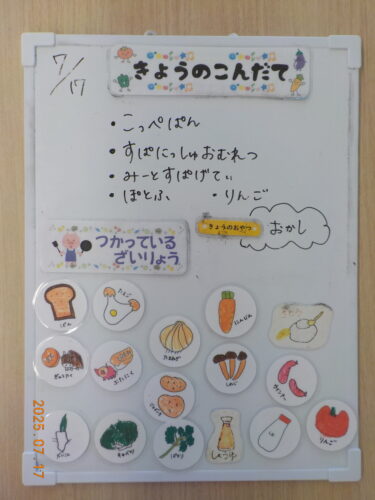 7/17
きょうのこんだて
・こっぺぱん
・すぱにっしゅおむれつ
・みーとすぱげてぃ
・ぽとふ ・りんご
きょうのおやつ おかし
つかっている
ざいりょう
ぱん
たまご
たまねぎ
にんじん
さとう
ぎゅうにく
ぶたにく
しめじ
ウインナー
じゃがいも
キャベツ
ぱせり
しょうゆ
しお
りんご
2025.07.17